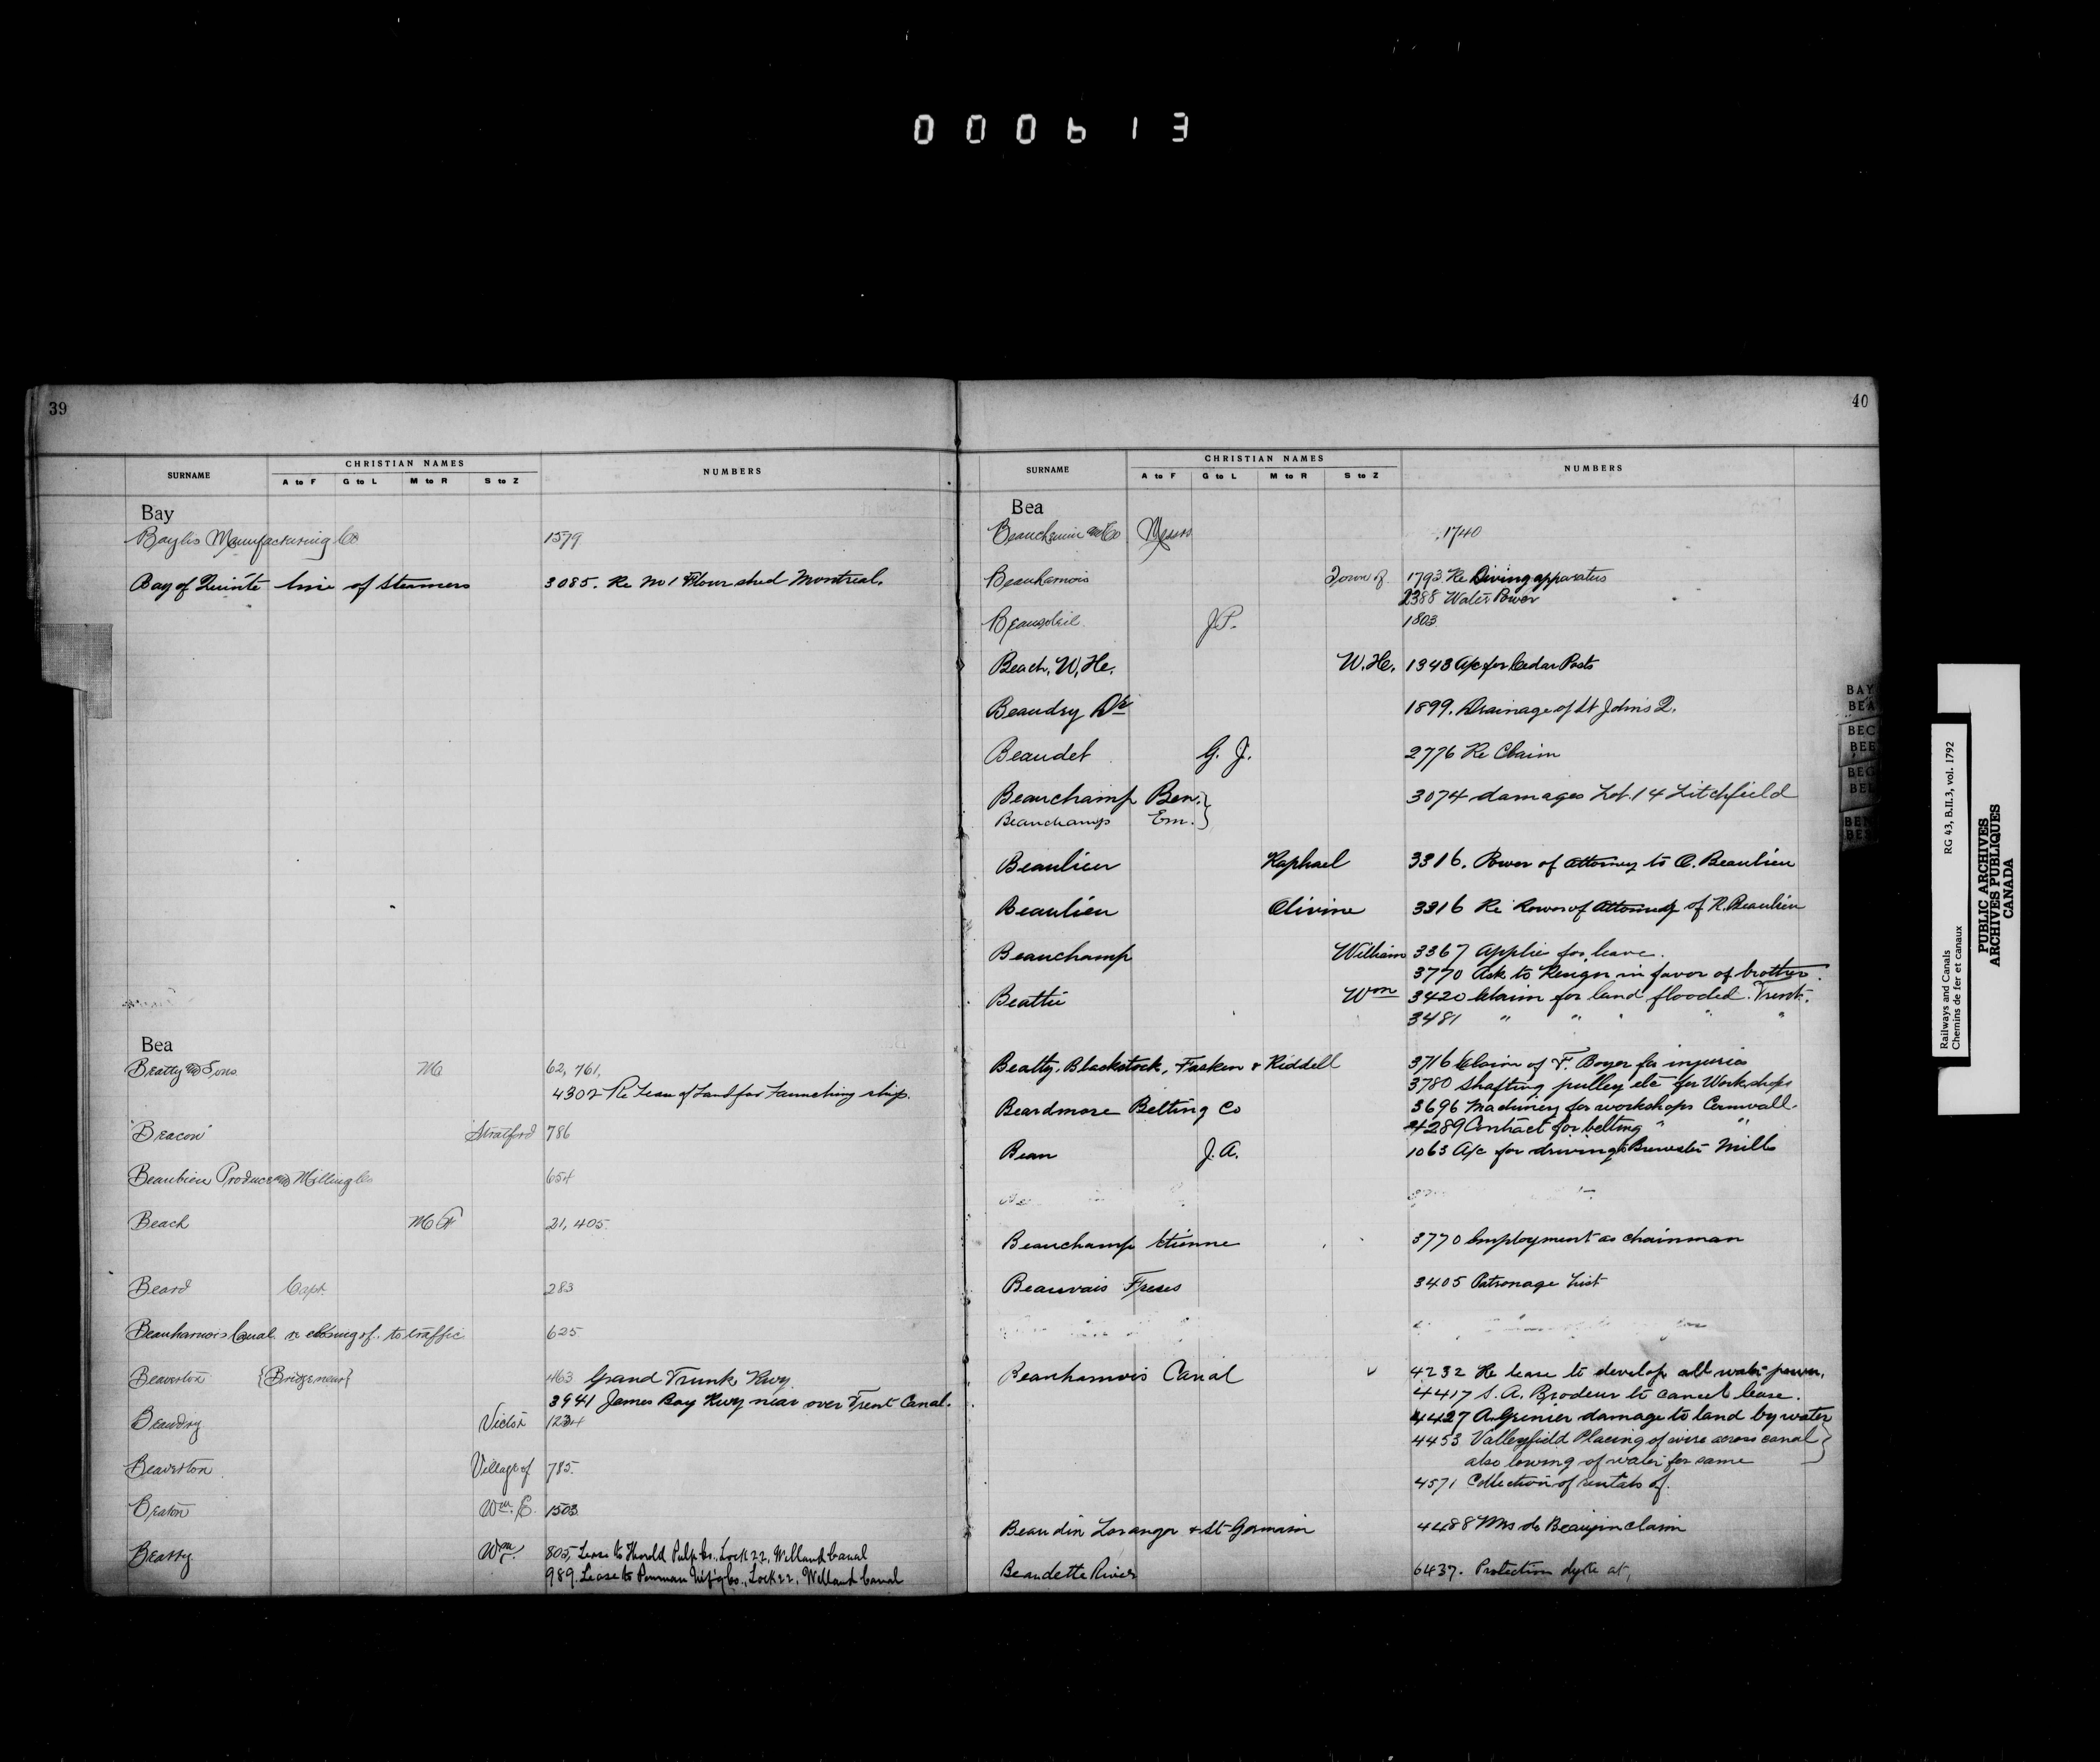 000613
39
SURNAME CHRISTIAN NAMES NUMBERS
A to F G to L M to R S to Z
Bay
Baylis Manufacturing Co 1579
Bay of Quinté line of Steamers 3085. Re No 1 Flour shed Montreal.
Bea
Beatty and Sons M 62, 761,
4302 Re Lease of Land for Launching ship.
"Beacon" Stratford 786
Beaubien Produce and Milling Co 654
Beach M 21, 405
Beard Capt. 283
Beauharnois Canal re closing of. to traffic 625
Beaverton {Bridge near} 463 Grand Trunk Rwy.
3941 James Bay Rwy near over Trent Canal.
Beaudry Victor 1234
Beaverton Village of 785.
Beaton Wm. 1503
Beatty Wm. 805, Lease to Harold Pulp Co., Lock 22, Welland Canal
989. Lease to Penman Mf'g Co., Lock 22, Welland Canal
40
SURNAME CHRISTIAN NAMES NUMBERS
A to F G to L M to R S to Z
Bea
Beauchemin and Co Messrs 1740
Beauharnois Town of 1793. Re Diving apparatus
2388 Water Power
Beausoleil J.P. 1803
Beach, W, H. W. H. 1343 A/c for Cedar Posts
Beaudry Dr 1899. Drainage of St Johns Q.
Beaudet G. J. 2776 Re Claim
Beauchamp Ben. } 3074 damages Lot. 14 Litchfield
Beauchamp Em. }
Beaulieu Raphael 3316. Power of attorney to O. Beaulieu
Beaulieu Olivine 3316 Re Power of Attorney of R. Beaulieu
Beauchamp William 3367 applie for leave.
3770 Ask to Resign in favor of brother.
Beattie Wm 3420 Claim for land flooded. Trent.
3481 " " " " "
Beatty. Blackstock, Fasken & Riddell 3716 Claim of F. Boyer for injuries
3780 Shafting pulley etc for Workshops
Beardmore Belting Co 3696 Machinery for workshops Cornwall.
4289 Contract for belting " "
Bean J. A. 1063 A/c for driving to Brewster Mills
Beauchamp Etienne 3770 Employment as chainman
Beauvais Freres 3405 Patronage List
Beauharnois Canal 4232 Re lease to develop all water power.
4417 S. A. Brodeur to cancel lease.
4427 A. Grenier damage to land by water
4453 Valleyfield Placing of wire across canal }
also lowing of water for same
4571 Collection of rentals of.
Beaudin Loranger & St Germain 4488 Mrs de Beaujeu claim
Beaudette River 6437. Protection dyke at,
BAY
BEA
BEC
BEE
BEG
BEL
BEN
BES
Railways and Canals RG 43, B.II.3, vol. 1792
Chemins de fer et canaux
PUBLIC ARCHIVES
ARCHIVES PUBLIQUES
CANADA